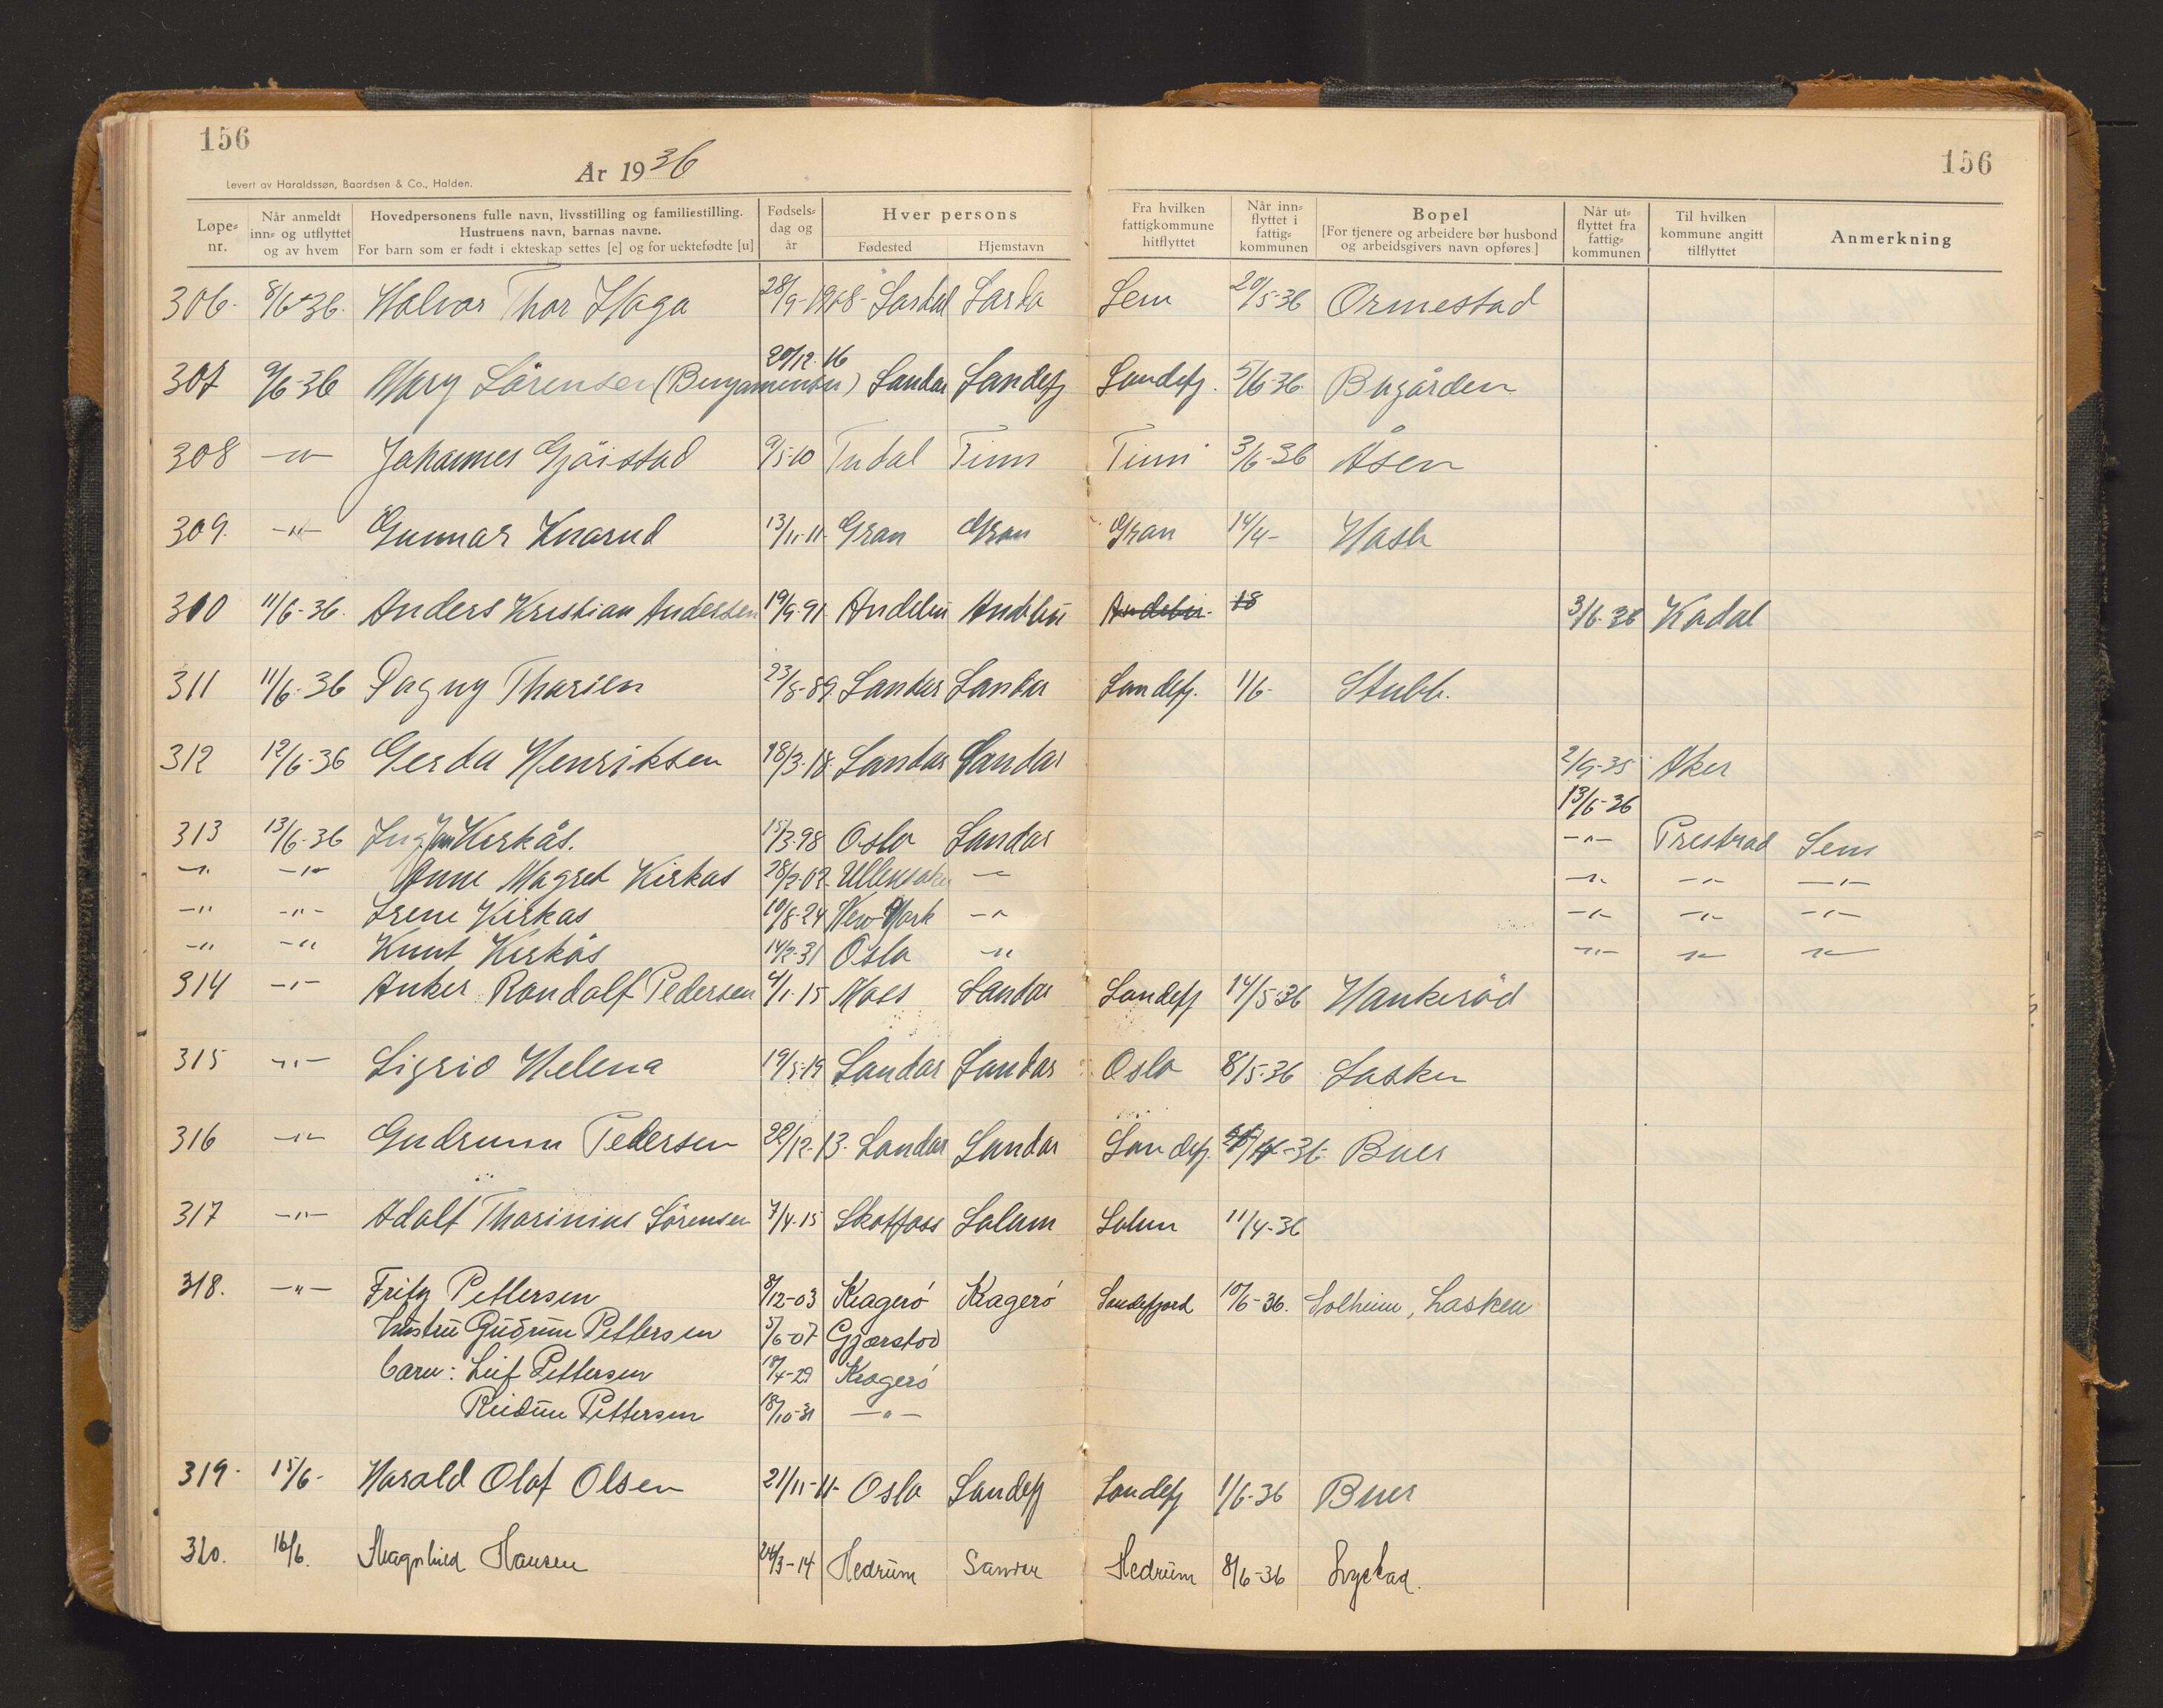 156
156
År 1936
Levert av Haraldssøn, Baardsen & Co., Halden.
Løpe-nr. Når anmeldt inn- og utflyttet og av hvem Hovedpersonens fulle navn, livsstilling og familiestilling. Hustruens navn, barnas navne. For barn som er født i ekteskap settes [e] og for uektefødte [u] Fødsels-dag og år Hver persons Fødested Hjemstavn Fra hvilken fattigkommune hitflyttet Når inn-flyttet i fattig-kommunen Bopel [For tjenere og arbeidere bør husbond og arbeidsgivers navn opføres] Når ut-flyttet fra fattig-kommunen Til hvilken kommune angitt tilflyttet Anmerkning
306. 8/6-36. Halvor Thor Haga 28/9-1908- Lardal Sem 20/5-36 Ormestad
307 9/6-36 Mary Sörensen (Benjaminsen) 20/12-16 Sandar Sandefj Sandefj. 5/6-36. Bugården
308 -"- Johannes Gjöistad 9/5-10 Tudal Tinn Tinn 3/6-36 Åsen
309. -"- Gunnar Knarud 13/11-11- Gran Gran Gran 14/4- Hasle
310 11/6-36. Anders Kristian Andersen 19/9-91. Andebu Andebu Andebu. 18 3/6-36 Kodal
311 11/6-36 Dagny Thorsen 23/8-89. Sandar Sandar Sandefj. 1/6- Stubb.
312 12/6-36 Gerda Henriksen 18/3-18. Sandar Sandar 2/9-35 Aker
13/6-36
313 13/6-36 Kirkås. 15/3-98 Oslo Sandar -"- Prestrød Sem
-"- -"- Anne Magret Kirkås 28/2-02 Ullensaker -"- -"- -"- -"-
-"- -"- Irene Kirkås 10/8-24 New York -"- -"- -"- -"-
-"- -"- Knut Kirkås 14/2-31 Oslo -"- -"- -"- -"-
314 -"- Anker Randolf Pedersen 4/1-15 Moss Sandar Sandefj 14/5-36 Haukeröd
315 -"- Sigrid Helena 19/5-19 Sandar Sandar Oslo 8/5-36 Lasken
316 -"- Gudrunn Pedersen 22/12-13. Sandar Sandar Sandefj. -36- Buer
317 -"- Adolf Thorinius Sörensen 7/4-15 Skotfoss Solum Solum 11/4-36
318. -"- Fritz Pettersen 8/12-03 Kragerö Kragerö Sandefjord 10/6-36. Solheim, Lasken
hustru Gudrun Pettersen 5/6-07 Gjerstad
barn: Leif Pettersen 18/4-29 Kragerö
Reidun Pettersen 18/10-31 -"-
319. 15/6- Harald Olaf Olsen 21/11-11- Oslo Sandefj Sandefj 1/6-36 Buer
320. 16/6. Magnhild Hansen 24/3-14 Hedrum Sandar Hedrum 8/6-36 Lystad.